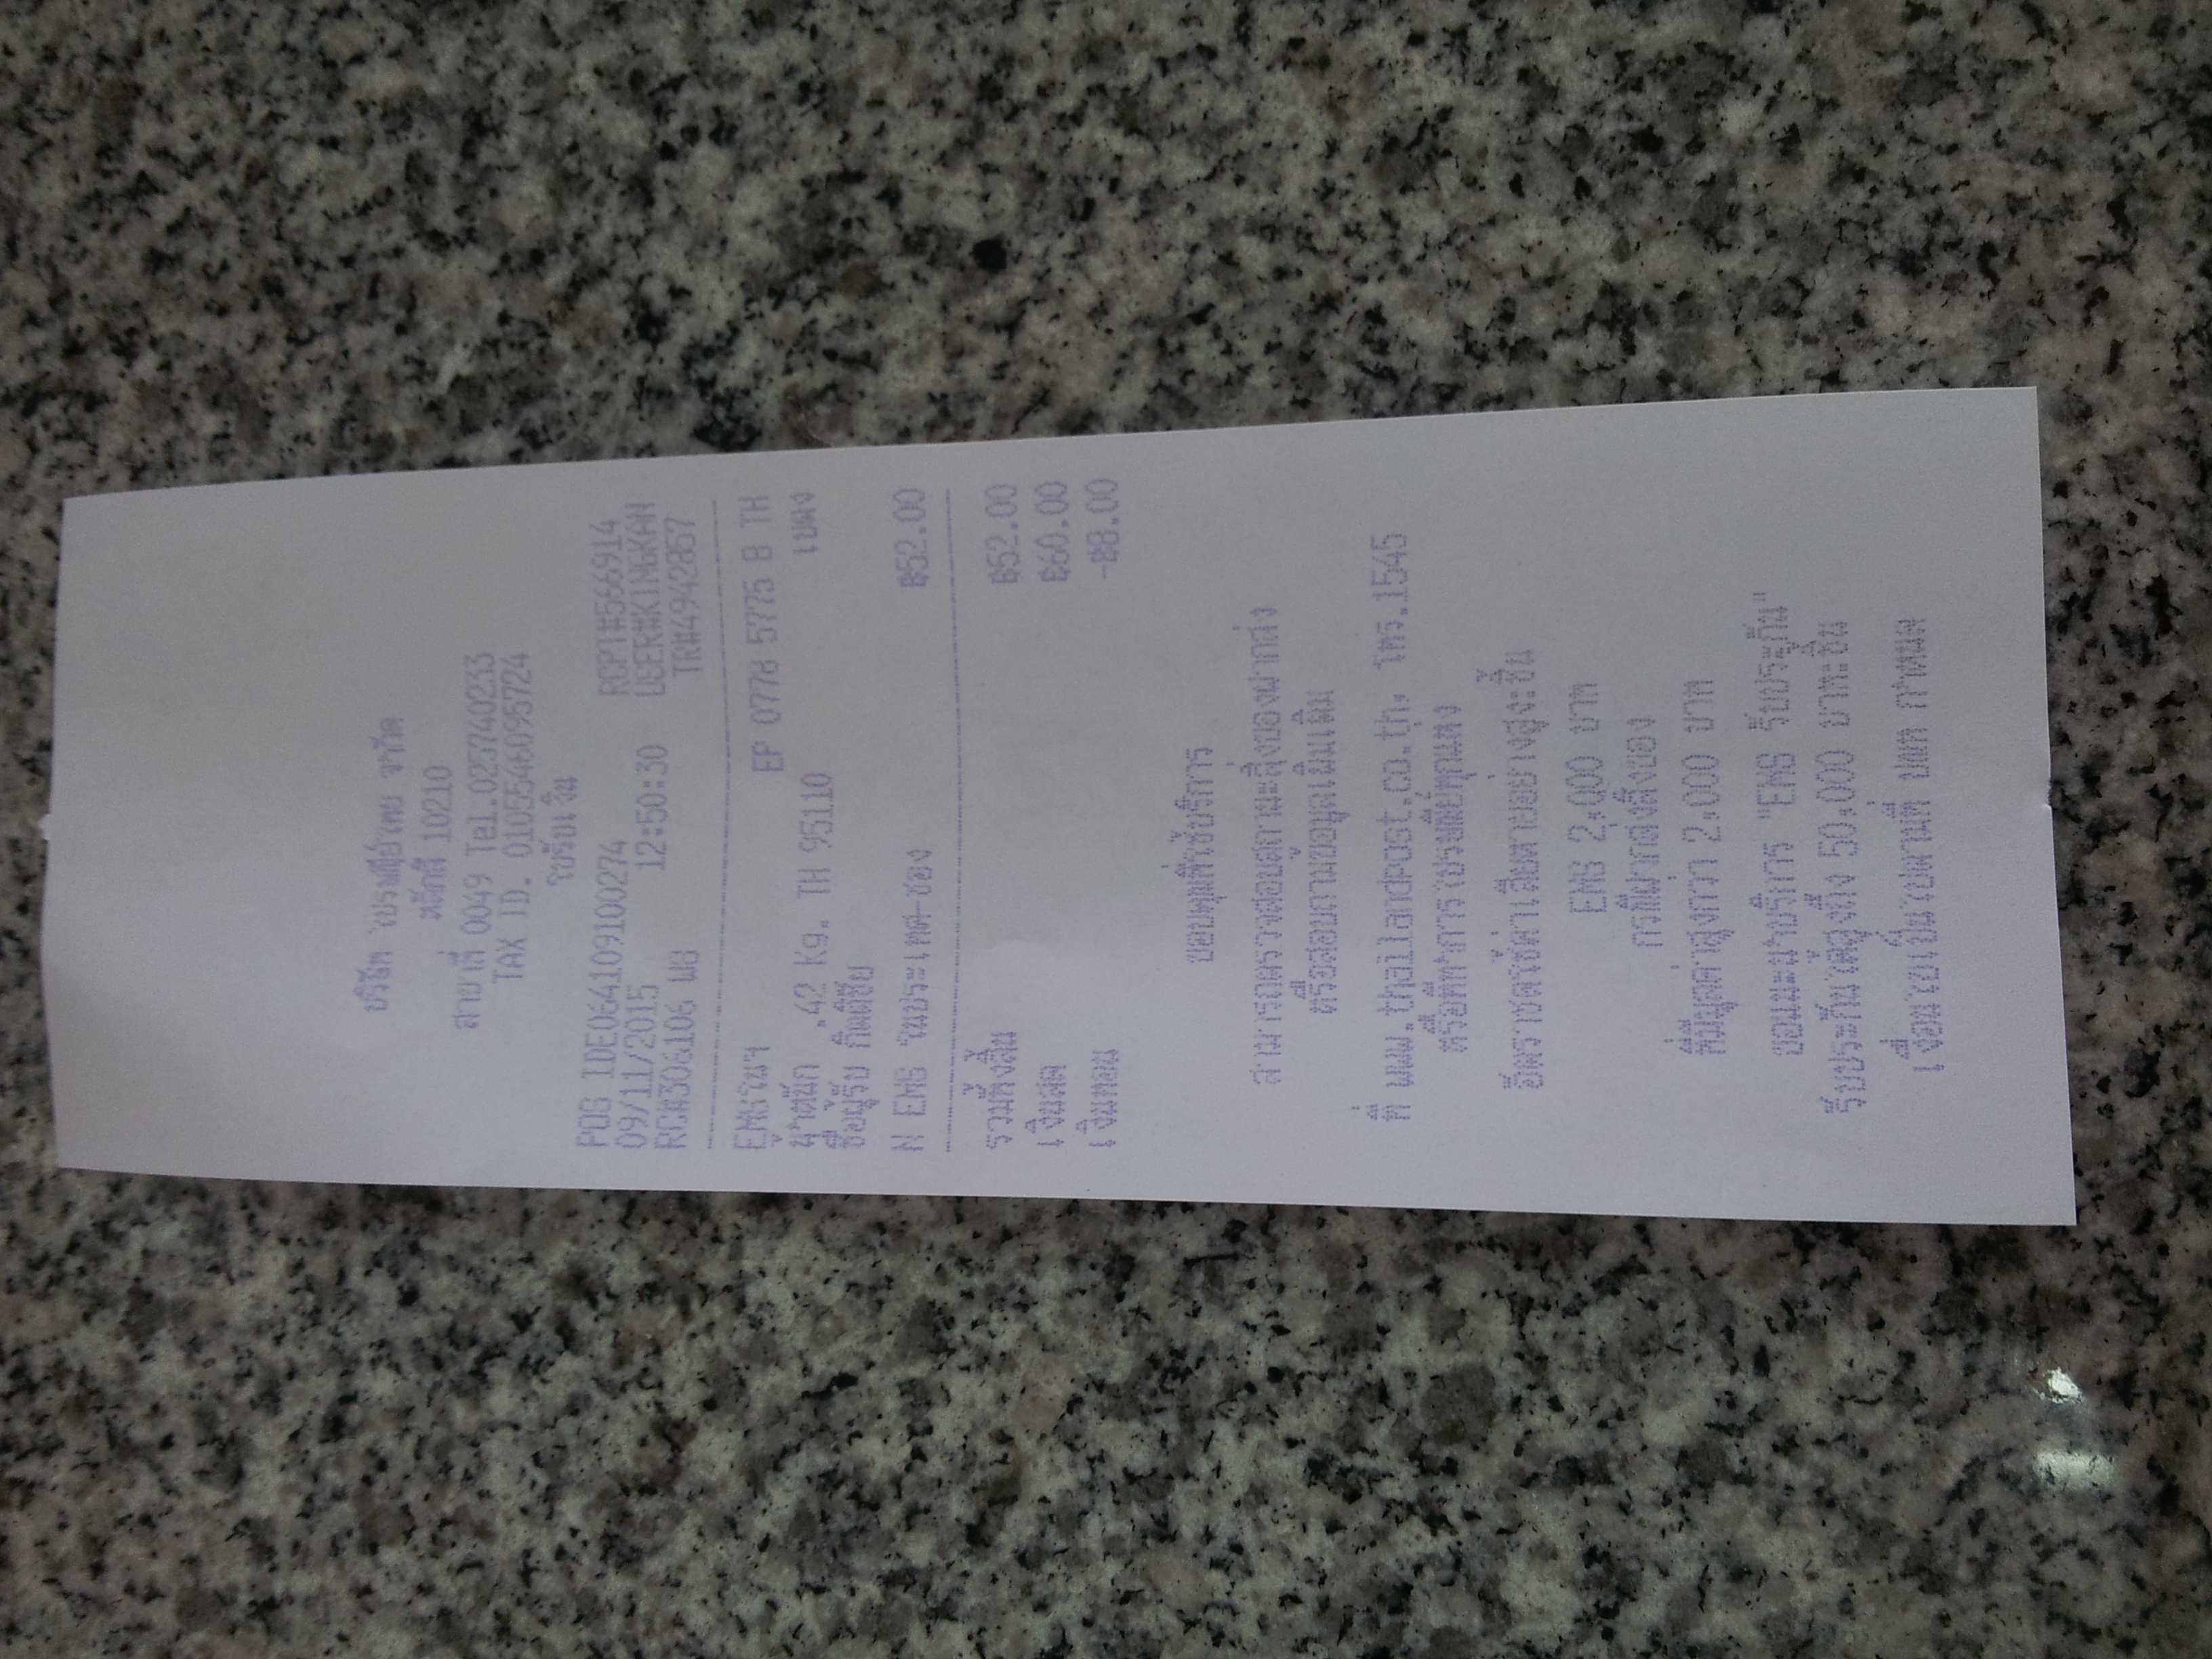 บริษัท ไปรษณีย์ไทย จำกัด
หลักสี่ 10210
สาขาที่ 0049 Tel.025740233
TAX ID. 0105546095724
ใบรับเงิน
POS IDE0641091C0274 RCPT#566914
09/11/2015 12:50:30 USER#KINGKAN
RG#306106 WB TR#4942867
EMSในฯ EP 0778 5775 8 TH
น้ำหนัก .42 Kg. TH 95110 เบตง
ชื่อผู้รับ กิตติชัย
N EMS ในประเทศ-ซอง ฿52.00
รวมทั้งสิ้น ฿52.00
เงินสด ฿60.00
เงินทอน -฿8.00
ขอบคุณที่ใช้บริการ
สามารถตรวจสอบสถานะสิ่งของฝากส่ง
หรือสอบถามข้อมูลเพิ่มเติม
ที่ www.thailandpost.co.th, โทร.1545
หรือที่ทำการไปรษณีย์ทุกแห่ง
อัตราชดใช้ค่าเสียหายอย่างสูงต่อชิ้น
EMS 2,000 บาท
กรณีฝากส่งสิ่งของ
ที่มีมูลค่าสูงกว่า 2,000 บาท
ขอแนะนำบริการ "EMS รับประกัน"
รับประกันได้สูงถึง 50,000 บาท/ชิ้น
เงื่อนไขเป็นไปตามที่ ปณท กำหนด